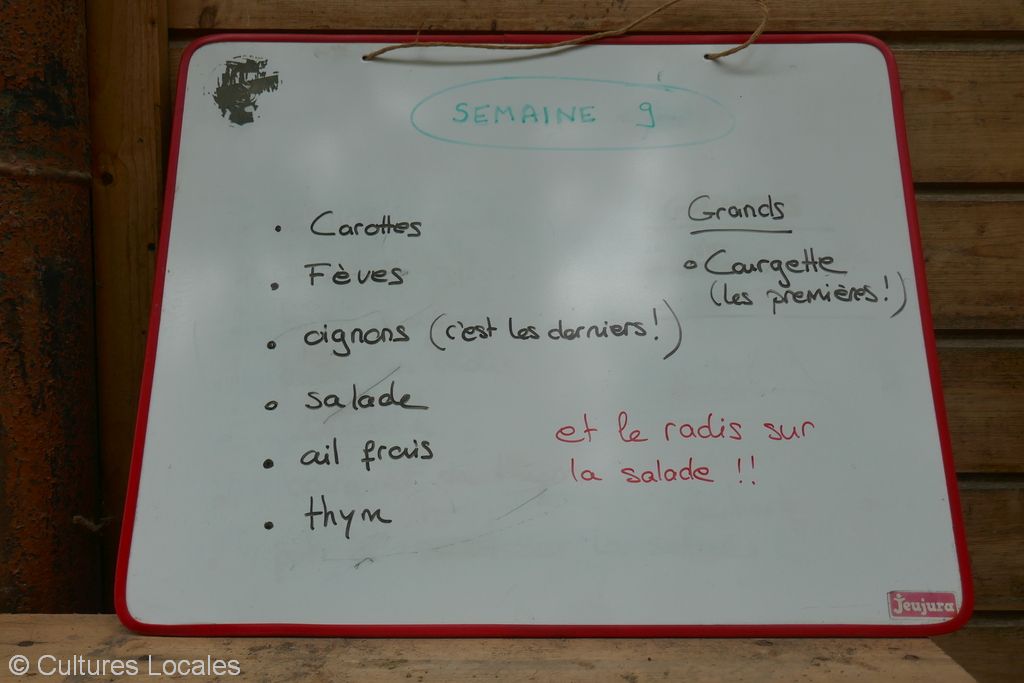 SEMAINE 9
• Carottes
• Fèves
• oignons (c'est les derniers!)
• salade
• ail frais
• thym
Grands
• Courgette
(les premières!)
et le radis sur
la salade !!
Jeujura
© Cultures Locales